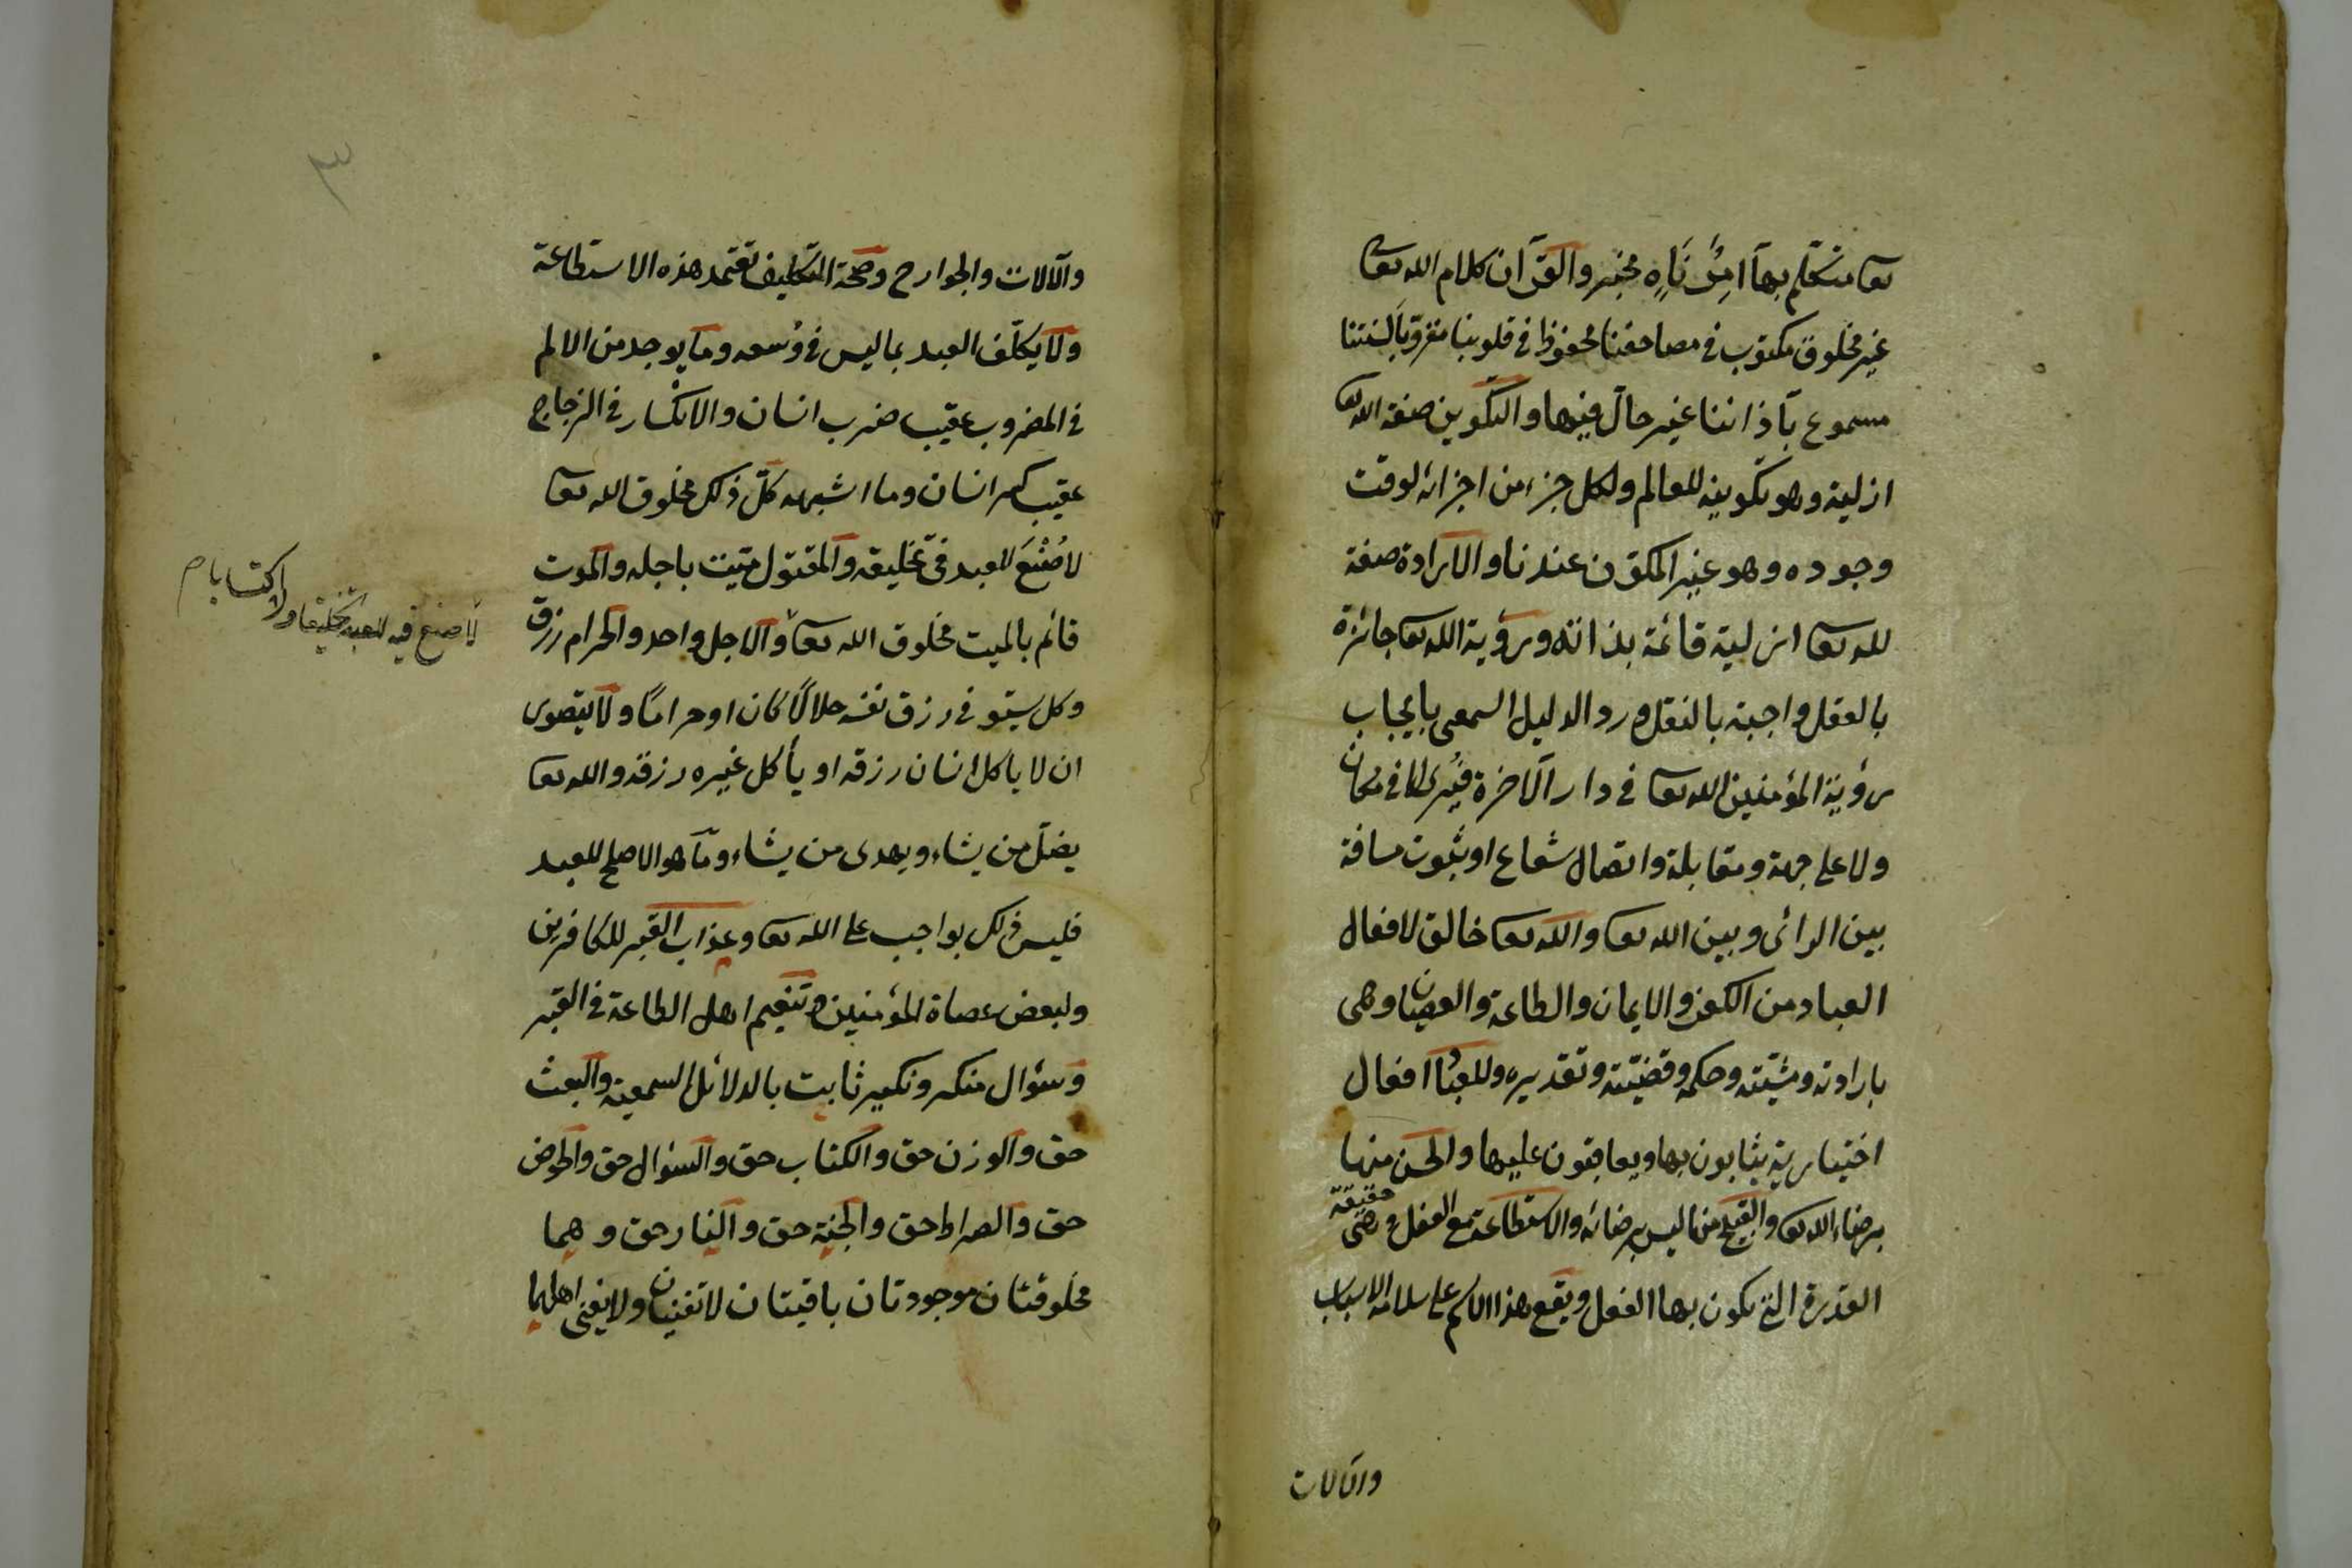 تعا متكلم بها آمِرٌ نَاهٍ مخبر والقرآن كلام الله تعا
غير مخلوق مكتوب فى مصاحفنا محفوظ فى قلوبنا مقروّ بألسنتنا
مسموع بآذاننا غير حالّ فيها والتكوين صفة الله تعا
ازلية وهو تكوينه للعالم ولكل جزء من اجزائه لوقت
وجوده وهو غير المكوّن عندنا والارادة صفة
لله تعا ازلية قائمة بذاته ورؤية الله تعا جائزة
بالعقل واجبة بالنقل ورد الدليل السمعى بايجاب
رؤية المؤمنين الله تعا فى دار الآخرة فيُرى لا فى مكان
ولا على جهة ومقابلة واتصال شعاع او ثبوت مسافة
بين الرائى وبين الله تعا والله تعا خالق لافعال
العباد من الكفر والايمان والطاعة والعصيان وهى
بارادته ومشيّته وحكمه وقضيّته وتقديره وللعباد افعال
اختيارية يثابون بها ويعاقبون عليها والحسن منها
برضاء الله تعا والقبيح منها ليس برضائه والاستطاعة مع الفعل وهى حقيقة
القدرة التى يكون بها الفعل ويقع هذا الاسم على سلامة الاسباب
والآلات
٣
والآلات والجوارح وصحة التكليف تعتمد هذه الاستطاعة
ولا يكلّف العبد بما ليس فى وُسعه وما يوجد من الالم
فى المضروب عقيب ضرب انسان والانكسار فى الزجاج
عقيب كسر انسان وما اشبهه كلّ ذلك مخلوق الله تعا
لا صُنْعَ للعبد فى تخليقه والمقتول ميّت باجله والموت
قائم بالميت مخلوق الله تعا والاجل واحد والحرام رزق
وكل يستوفى رزق نفسه حلالًا كان او حرامًا ولا يتصور
ان لا ياكل انسان رزقه او يأكل غيره رزقه والله تعا
يضلّ من يشاء ويهدى من يشاء وما هو الاصلح للعبد
فليس ذلك بواجب على الله تعا وعذاب القبر للكافرين
ولبعض عصاة المؤمنين وتنعيم اهل الطاعة فى القبر
وسؤال منكر ونكير ثابت بالدلائل السمعية والبعث
حق والوزن حق والكتاب حق والسؤال حق والحوض
حق والصراط حق والجنة حق والنار حق وهما
مخلوقتان موجودتان باقيتان لا تفنيان ولا يفنى اهلهما
لا صنع فيه للعبد تخليقا ولا اكتسابا م